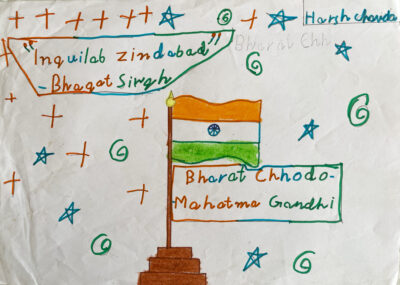 Harsh chawda
Bharat Chh
"Inquilab zindabad"
- Bhagat Singh
Bharat Chhodo-
Mahatma Gandhi